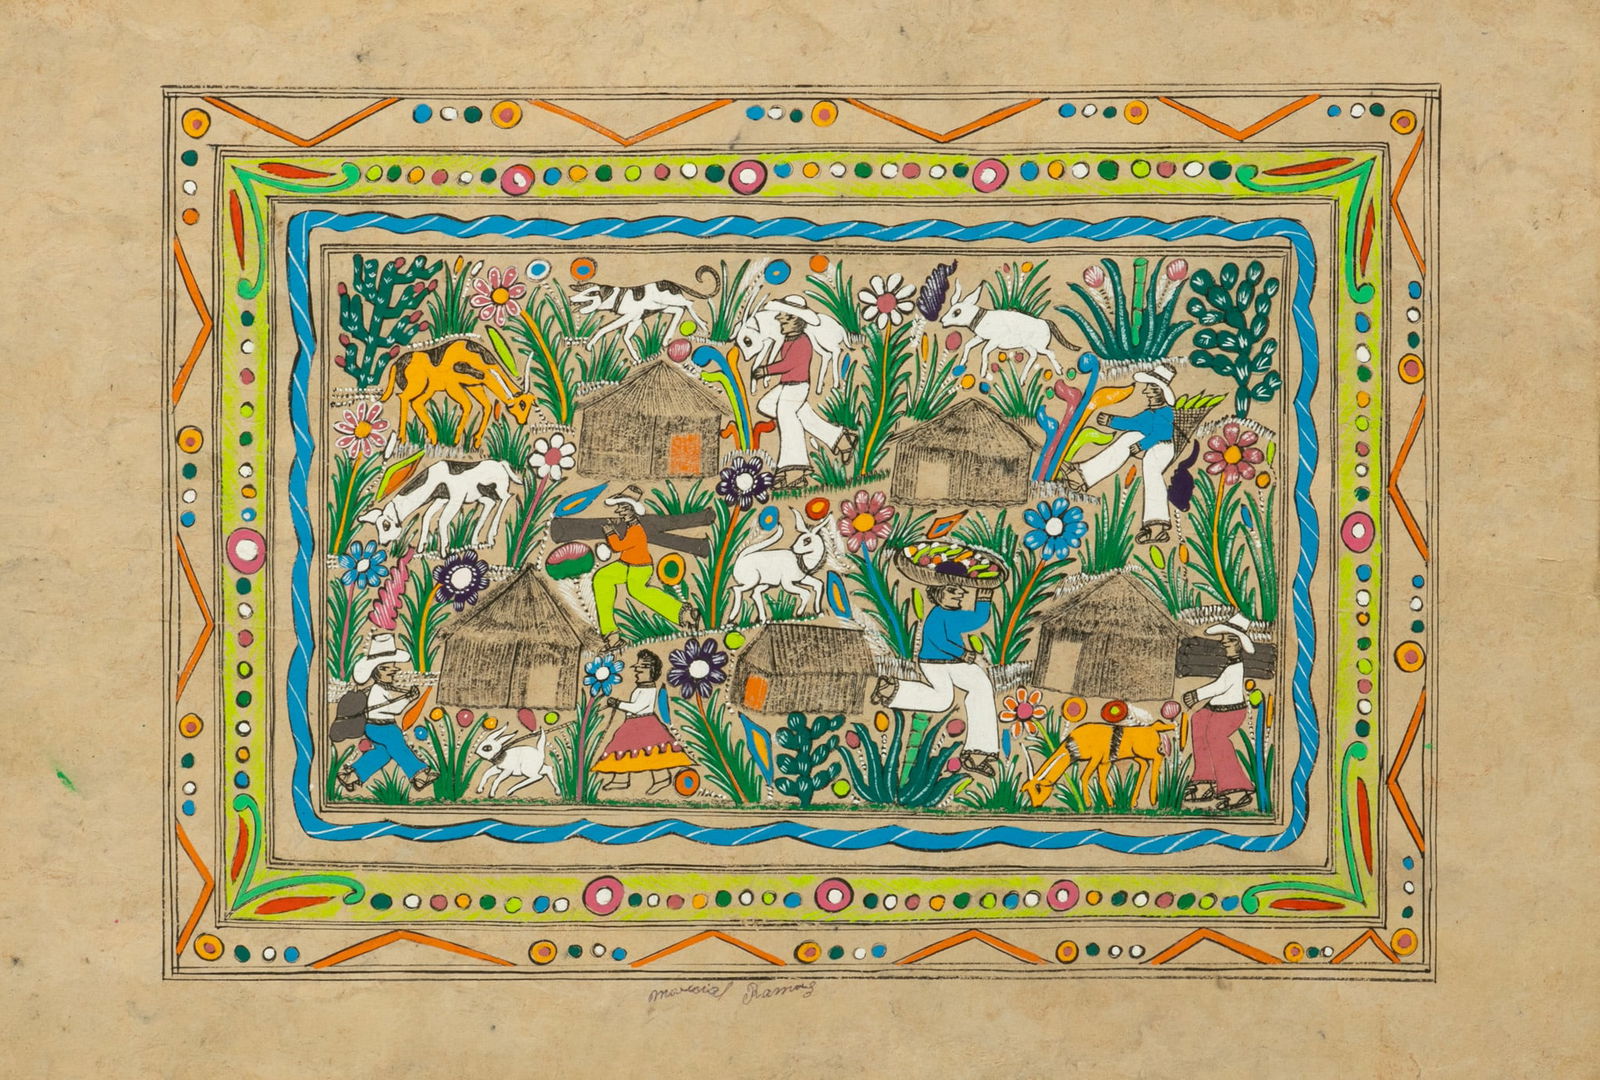 Marcial Ramos